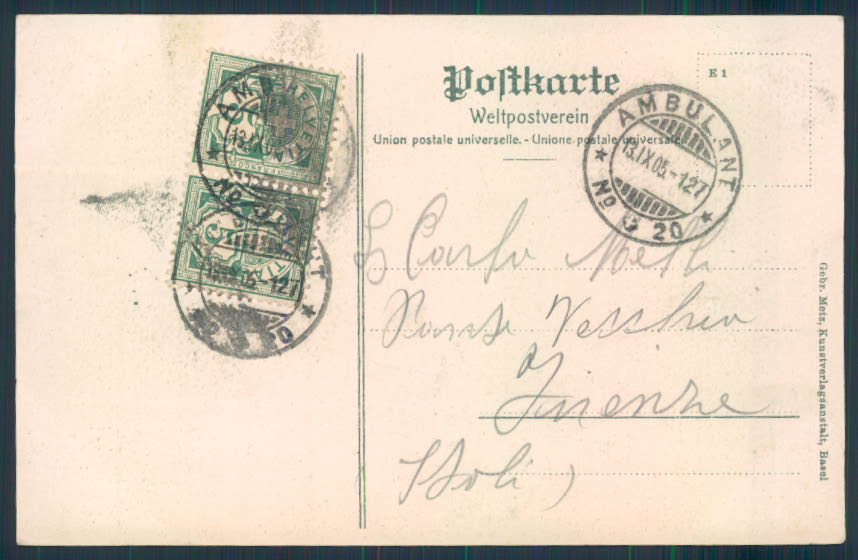 Postkarte
Weltpostverein
Union postale universelle. - Unione postale universale.
E 1
AMBULANT
13.IX.05.-127
No 20
HELVETIA
FRANCO
5
AMBULANT
No
Carlo
Ponte Vecchio
Firenze
(Itali)
Gebr. Metz, Kunstverlagsanstalt, Basel